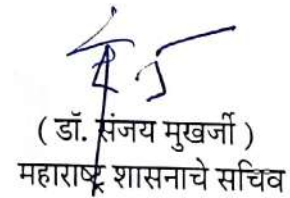 ( डॉ. संजय मुखर्जी )
महाराष्ट्र शासनाचे सचिव